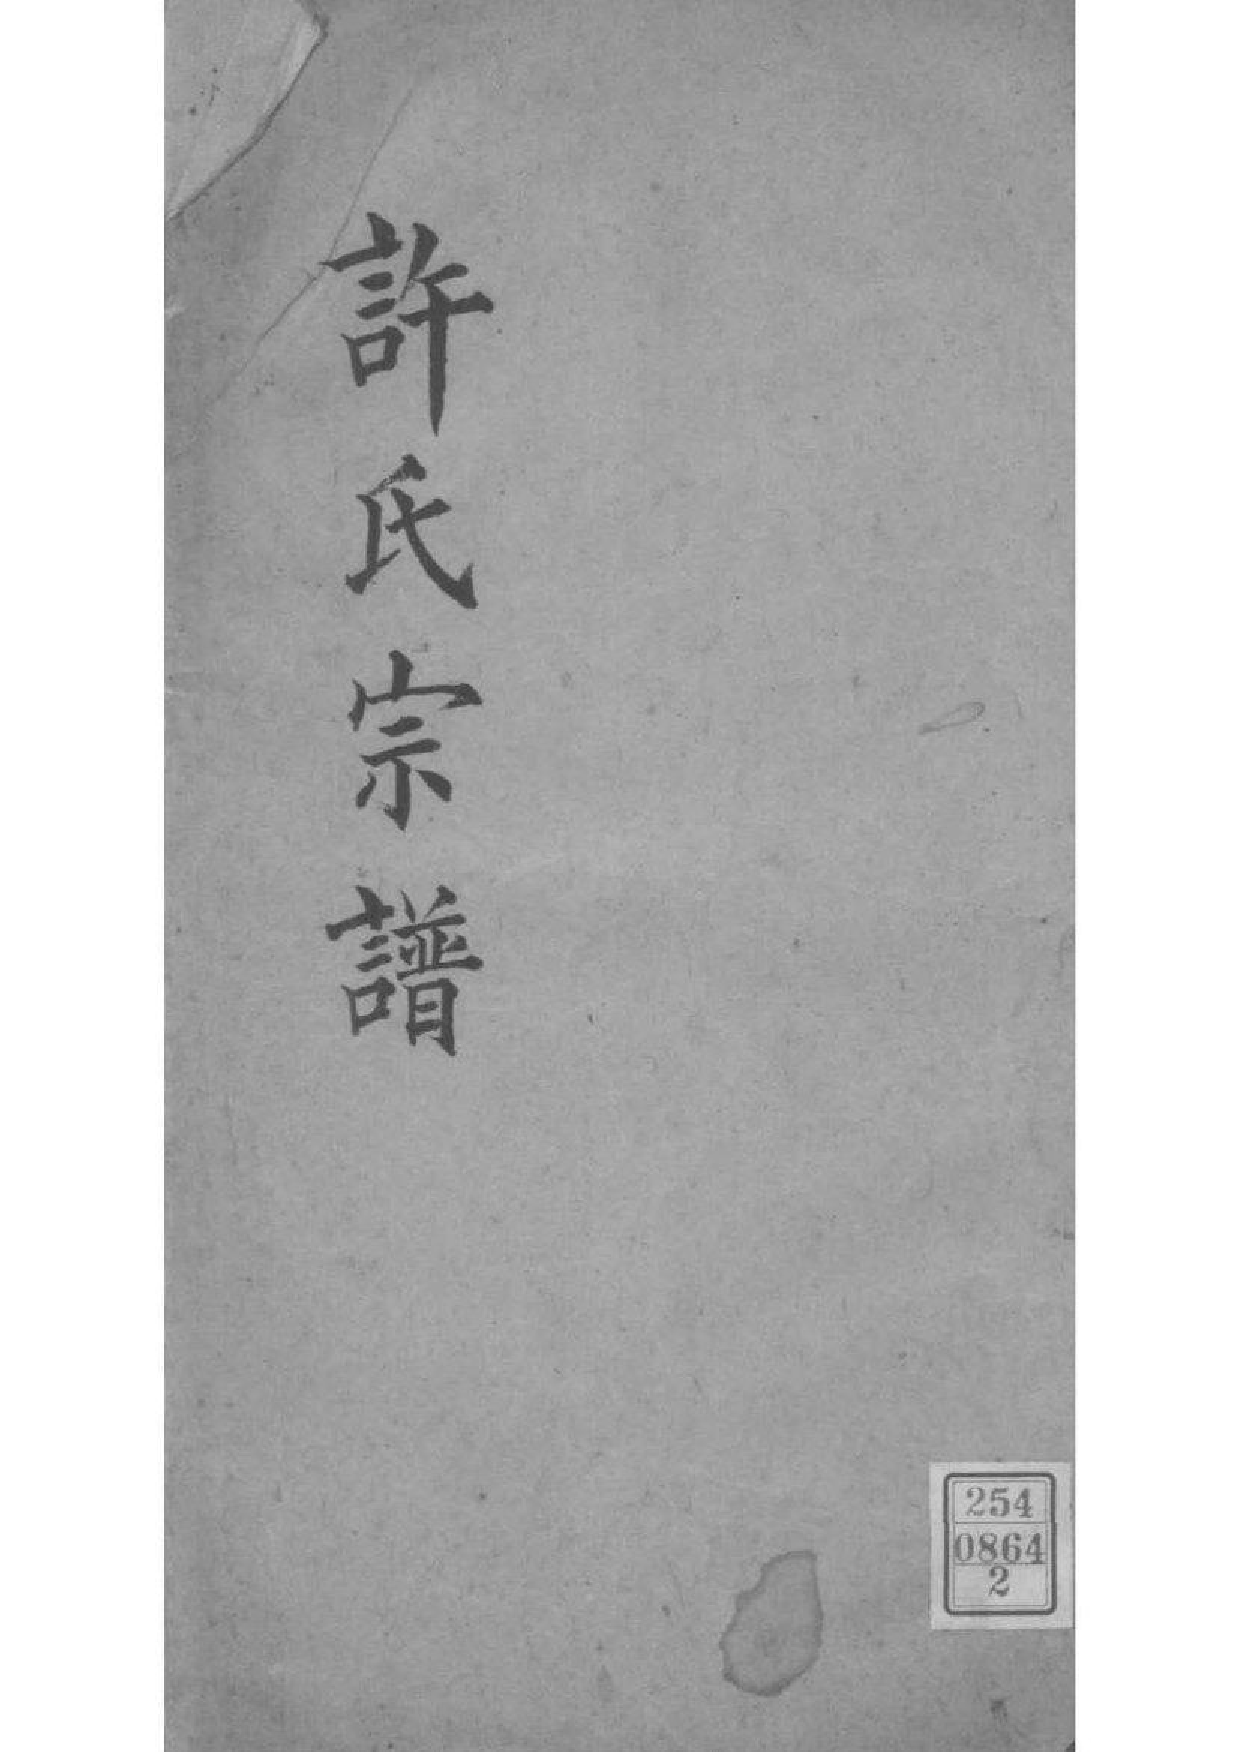 許氏宗譜
254
0864
2